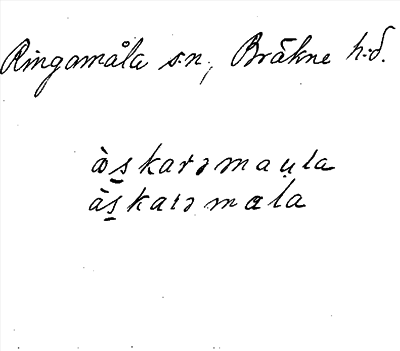 Ringamåla s:n, Bräkne h:d.
àskarəmau̯la
àskarəmala